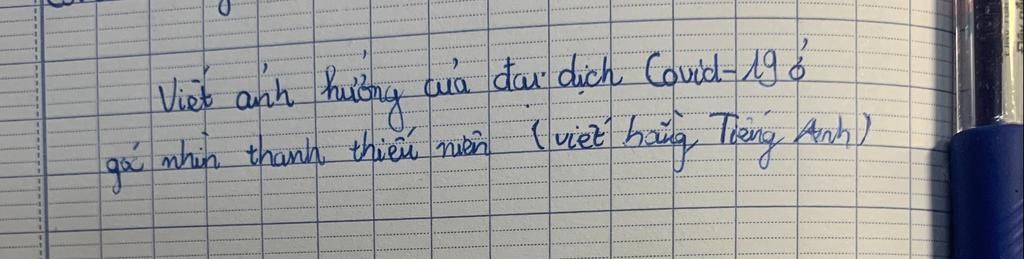 Viết ảnh hưởng của đại dịch Covid-19 ở
góc nhìn thanh thiếu niên (viết bằng Tiếng Anh)